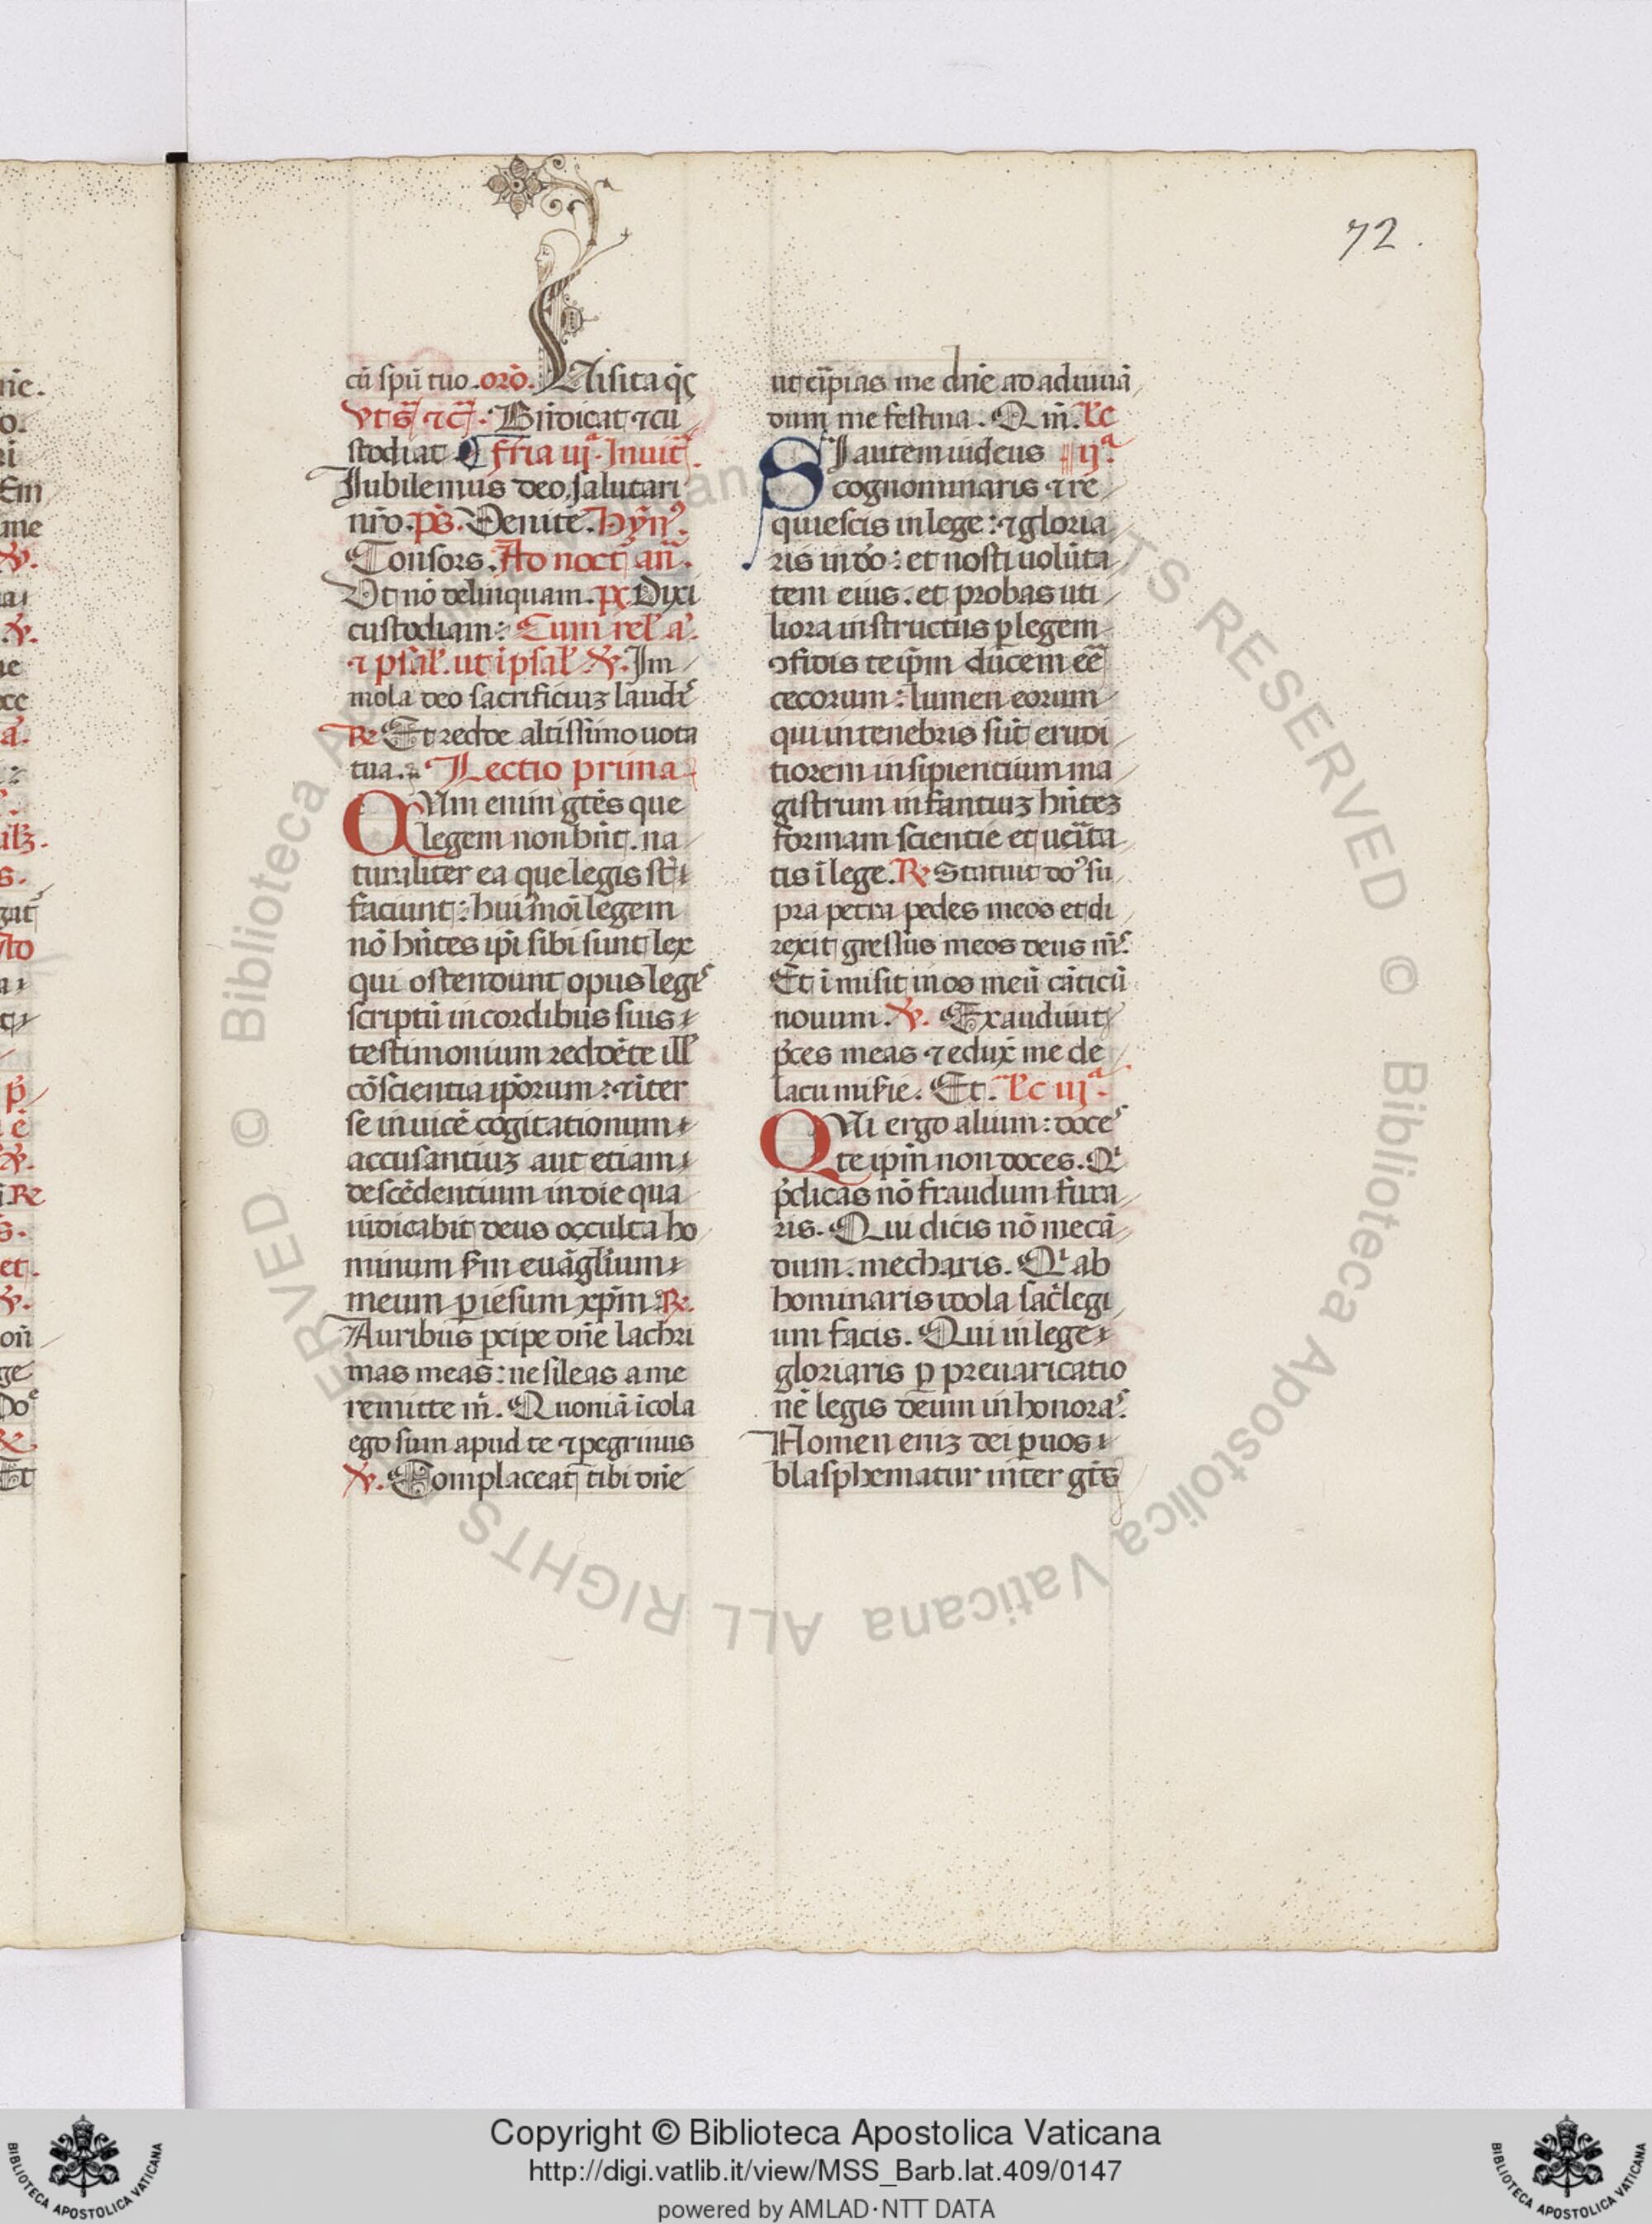 72.
cū spū tuo. orō. Visita q̄s
vt sͣ ⁊ cͣ. Bn̄dicat ⁊ cu
stodiat. ¶ fr̄ia iijͣ. Inuitͣ.
Iubilemus deo salutari
nr̄o. ps̄. Venite. Hyn̄ꝰ.
Consors. Ad noct̄ an̄.
Vt nō delinquam. p̄s. Dixi
custodiam: Cum rel̕ aͥ.
⁊ psal̕. ut ī psal̕ ℣. Im
mola deo sacrificiuʒ laudꝭ
℟ Et redde altissimo uota
tua. Lectio prima
QVm enim gtēs que
legem non hn̄t. na
turaliter ea que legis st̄
faciunt: hui̕mōi legem
nō hn̄tes ip̄i sibi sunt lex
qui ostendunt opus legꝭ
scriptū in cordibus suis
testimonium reddēte ill̕
cōscientia ip̄orum: ⁊ īter
se inuicē cogitationum
accusantiuʒ aut etiam
defēdentium in die qua
iudicabit deus occulta ho
minum s̄m euāgl̄ium
meum ꝑ iesum xp̄m ℟.
Auribus ꝑcipe dn̄e lachri
mas meas: ne sileas a me
remitte m̄. Quoniā īcola
ego sum apud te ⁊ ꝑegrinus
℣. Complaceat tibi dn̄e
ut eīpias me dn̄e ad adiuuā
dum me festina. Qm̄. lc̄
SI autem iudeus ijͣ.
cognominaris ⁊ re
quiescis in lege: ⁊ gloria
ris in dō: et nosti uolūta
tem eius. et probas uti
liora instructus ꝑ legem
ꝯfidis teip̄m ducem eē
cecorum: lumen eorum
qui in tenebris sūt erudi
tiorem insipientium ma
gistrum infantiuʒ hn̄teʒ
formam scientie et ueīta
tis ī lege. ℟ Statuit dō su
pra petra pedes meos et di
rexit gressus meos deus mꝰ
Et īmisit in os meū cāticū
nouum. ℣. Exaudiuit
p̄ces meas ⁊ edux̄ me de
lacu mis̄ie. Et. lc̄ iijͣ.
QVi ergo alium: doceˢ
teip̄m non doces. Qͥ
p̄dicas nō fraudum fura
ris. Qui dicis nō mecā
dum. mecharis. Qͥ ab
hominaris idola sac̄legi
um facis. Qui in lege
gloriaris ꝑ preuaricatio
nē legis deum inhonoraˢ.
Nomen eniʒ dei ꝑ uos
blasphematur inter gtēs
Copyright © Biblioteca Apostolica Vaticana
http://digi.vatlib.it/view/MSS_Barb.lat.409/0147
powered by AMLAD·NTT DATA
BIBLIOTECA APOSTOLICA VATICANA
BIBLIOTECA APOSTOLICA VATICANA